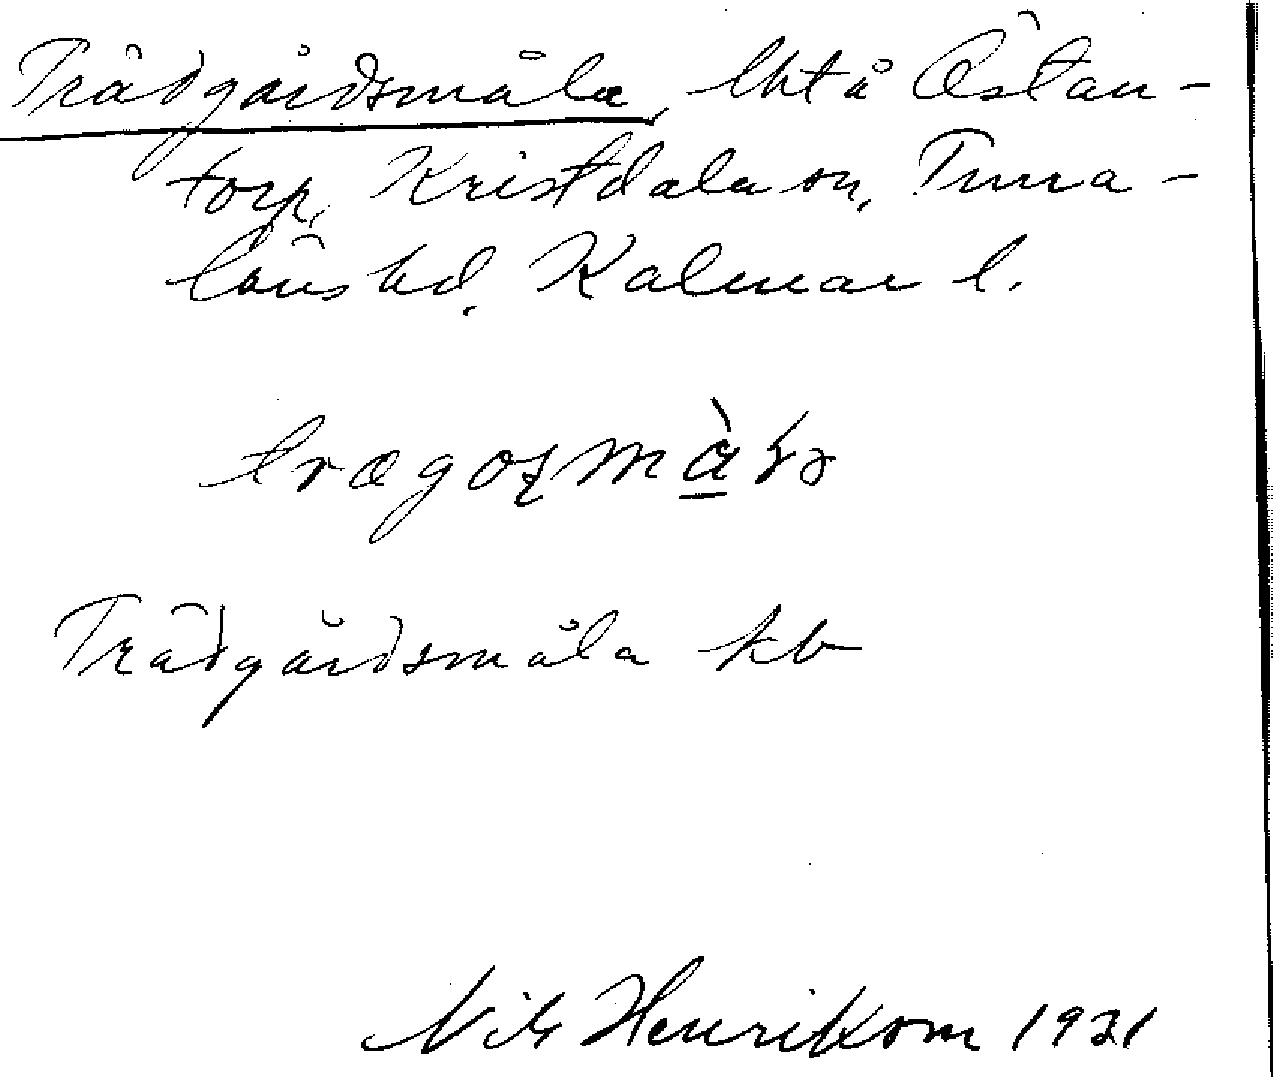 Trädgårdsmåla, lht å Östan-
torp, Kristdala sn, Tuna-
läns hd, Kalmar l.
Trädgårdsmåla kb
Nils Henrikson 1921